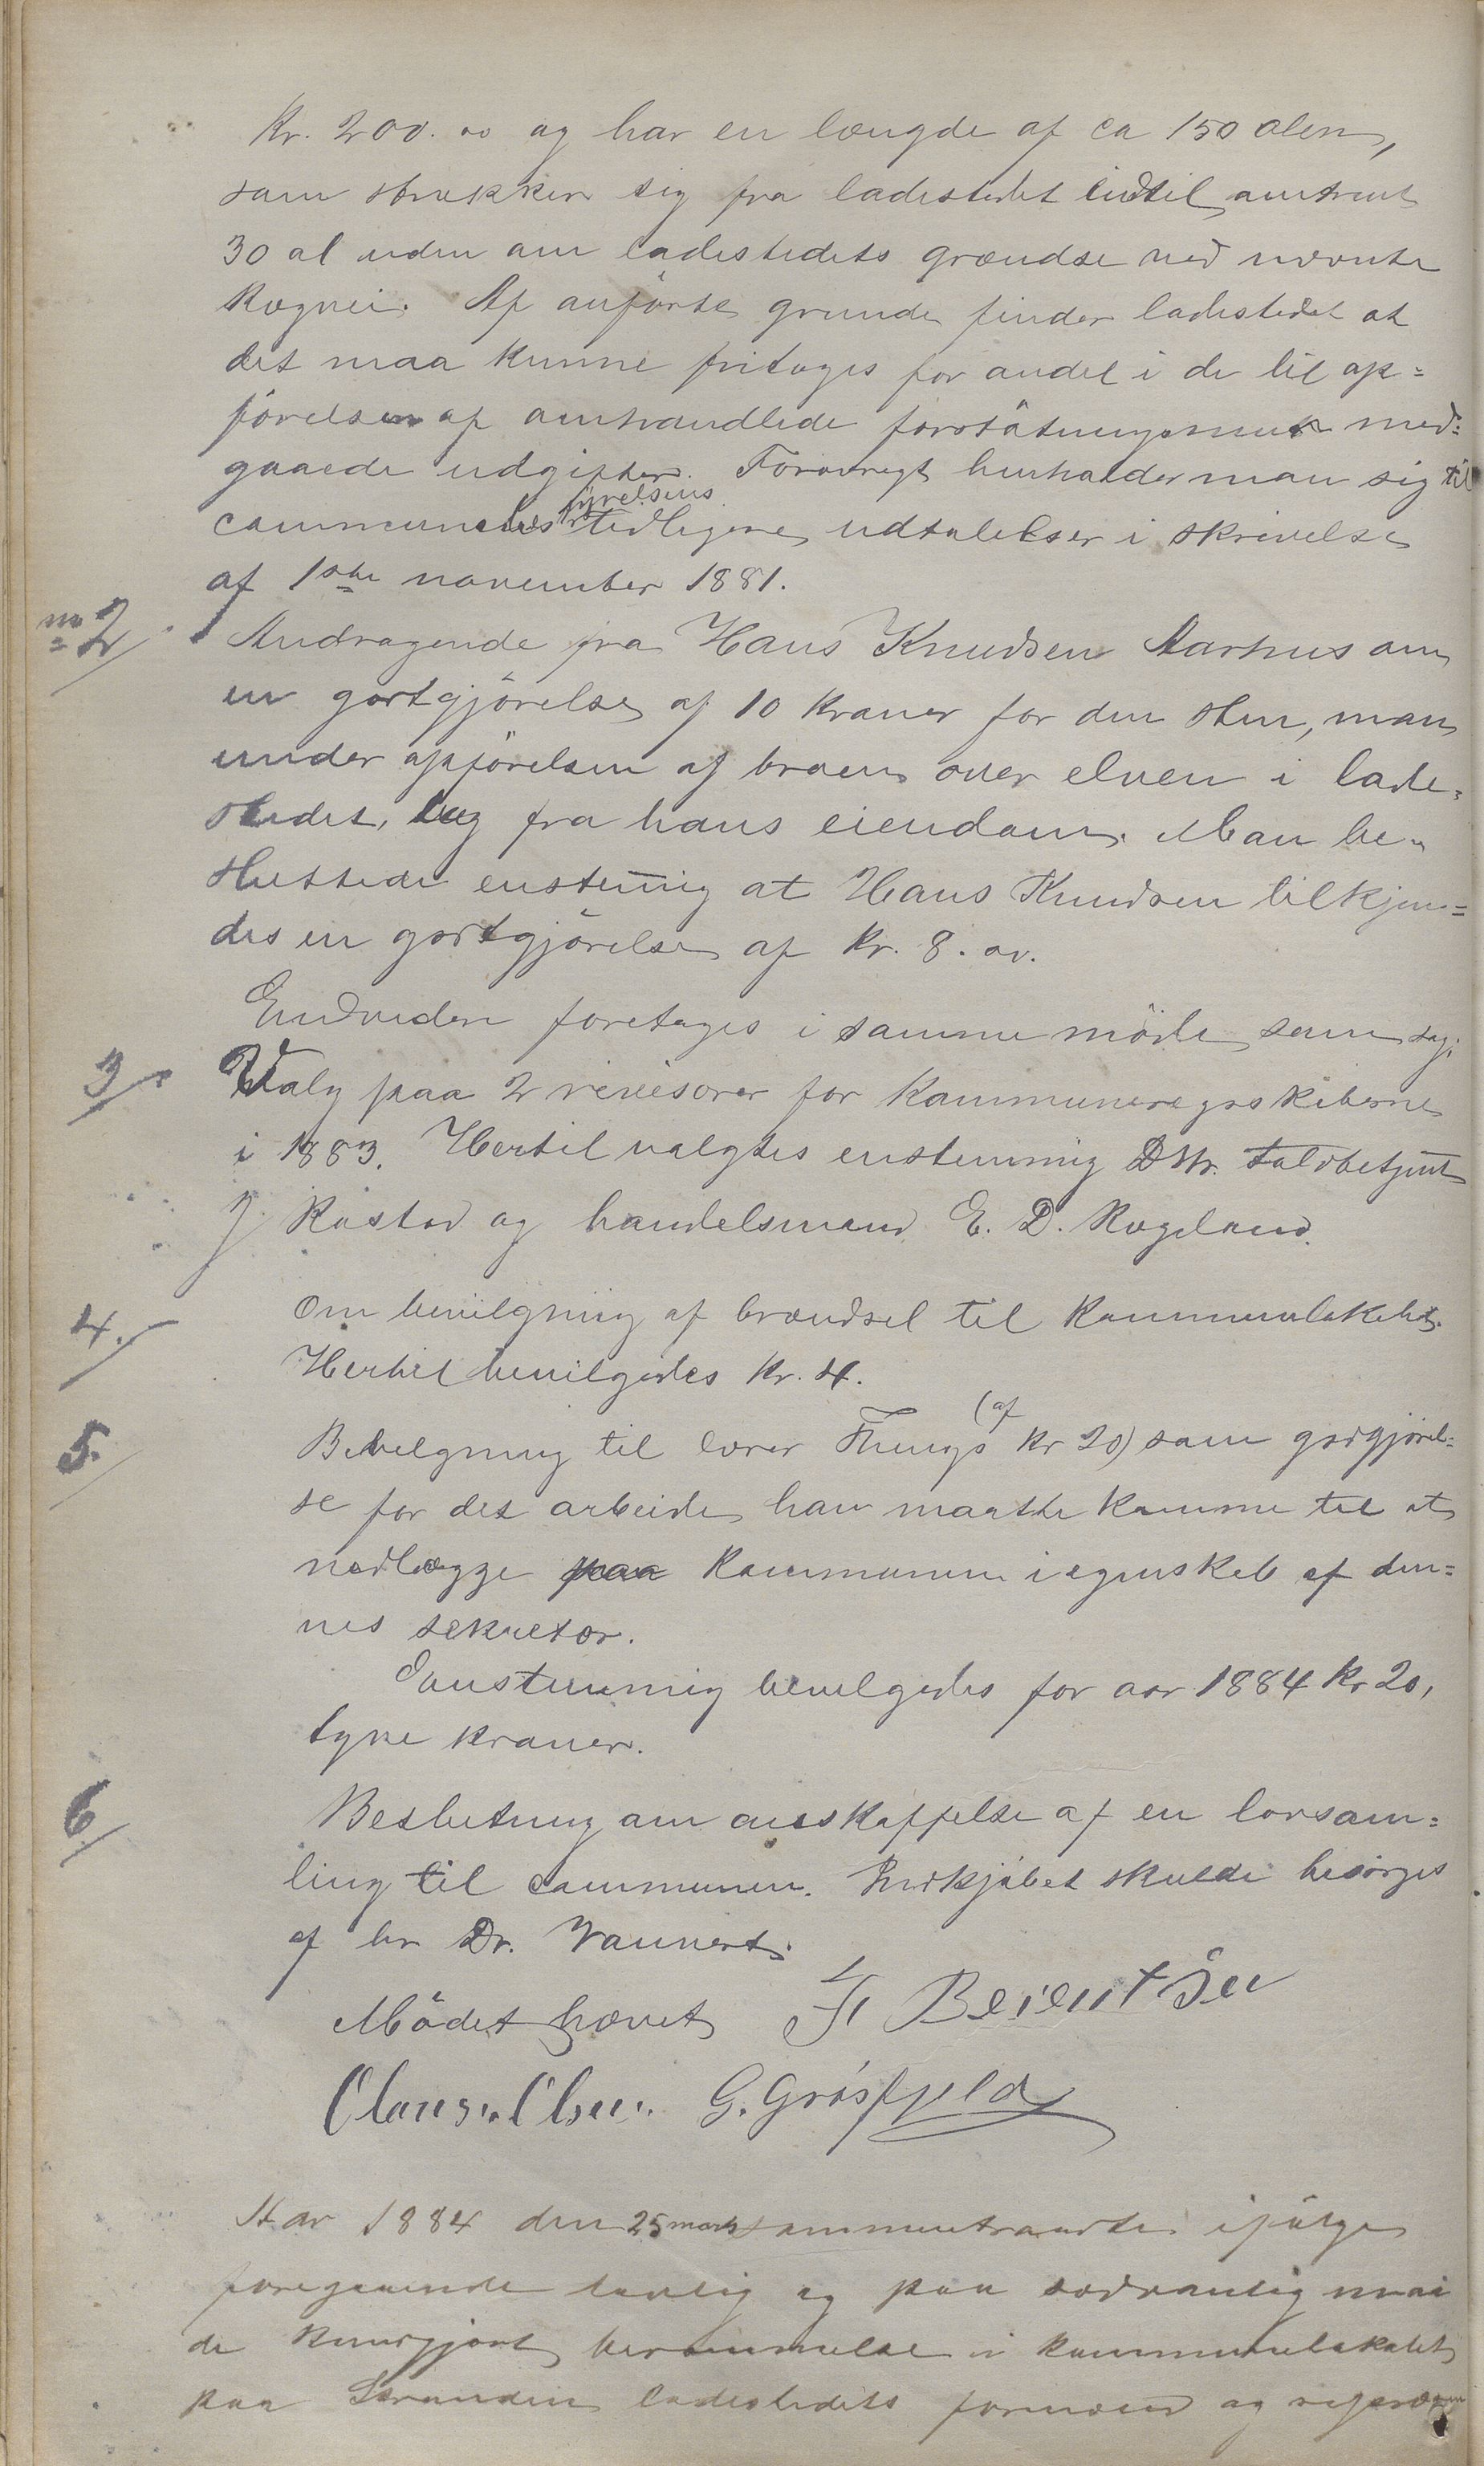 Kr. 200.00 og har en længde af ca 150 alen,
som strækker sig fra ladestedet indtil omtrent
30 al uden om ladestedets grændse ved nævnte
Rægevei. Af anførte grunde finder ladestedet at
det maa kunne fritages for andel i de til op=
førelsen af omhandlede forstøtningsmur med=
gaaede udgifter. Forøvrigt henholder man sig til
communebestyrelsens tidligere udtalelser i skrivelse
af 1ste november 1881.
no 2/ Andragende fra Hans Knudsen Aarhus om
en godtgjørelse af 10 kroner for den sten, man
under opførelsen af broen over elven i lade=
stedet, tog fra hans eiendom. Man be=
sluttede enstemmig at Hans Knudsen tilkjen=
des en godtgjørelse af Kr. 8.00.
Endvidere foretoges i samme møde som sag:
3/ Valg paa 2 revisorer for Kommuneregnskaberne
i 1883. Hertil valgtes enstemmig DHr. toldbetjent
J. Rostad og handelsmand E. D. Rogeland.
4. Om bevilgning af brændsel til Kommunelokalet.
Hertil bevilgedes Kr. 4.
5. Bevilgning til lærer Thungs (af Kr 20) som godgjørel=
se for det arbeide han maatte komme til at
nedlægge paa Kommunen i egenskab af den=
nes sekretær.
Eenstemmig bevilgedes for aar 1884 Kr 20,
tyve kroner.
6/ Beslutning om anskaffelse af en lovsam=
ling til communen. Indkjøbet skulde besørges
af hr Dr. Vannert.
Mødet hævet F. Beientsen
Claus. Olsen. G. Gråsfjeld
Aar 1884 den 25 marts sammentraadte ifølge
foregaaende lovlig og paa sedvanlig maa
de kundgjort berammelse i kommunelokalet
paa Stranden ladestedets formænd og repræsen